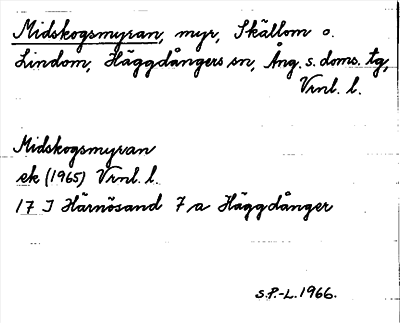 Midskogsmyran, myr, Skällom o.
Lindom, Häggdångers sn, Ång. s. doms. tg,
Vrnl. l.
Midskogsmyran
ek (1965) Vrnl. l.
17 J Härnösand 7 a Häggdånger
S.P.-L. 1966.